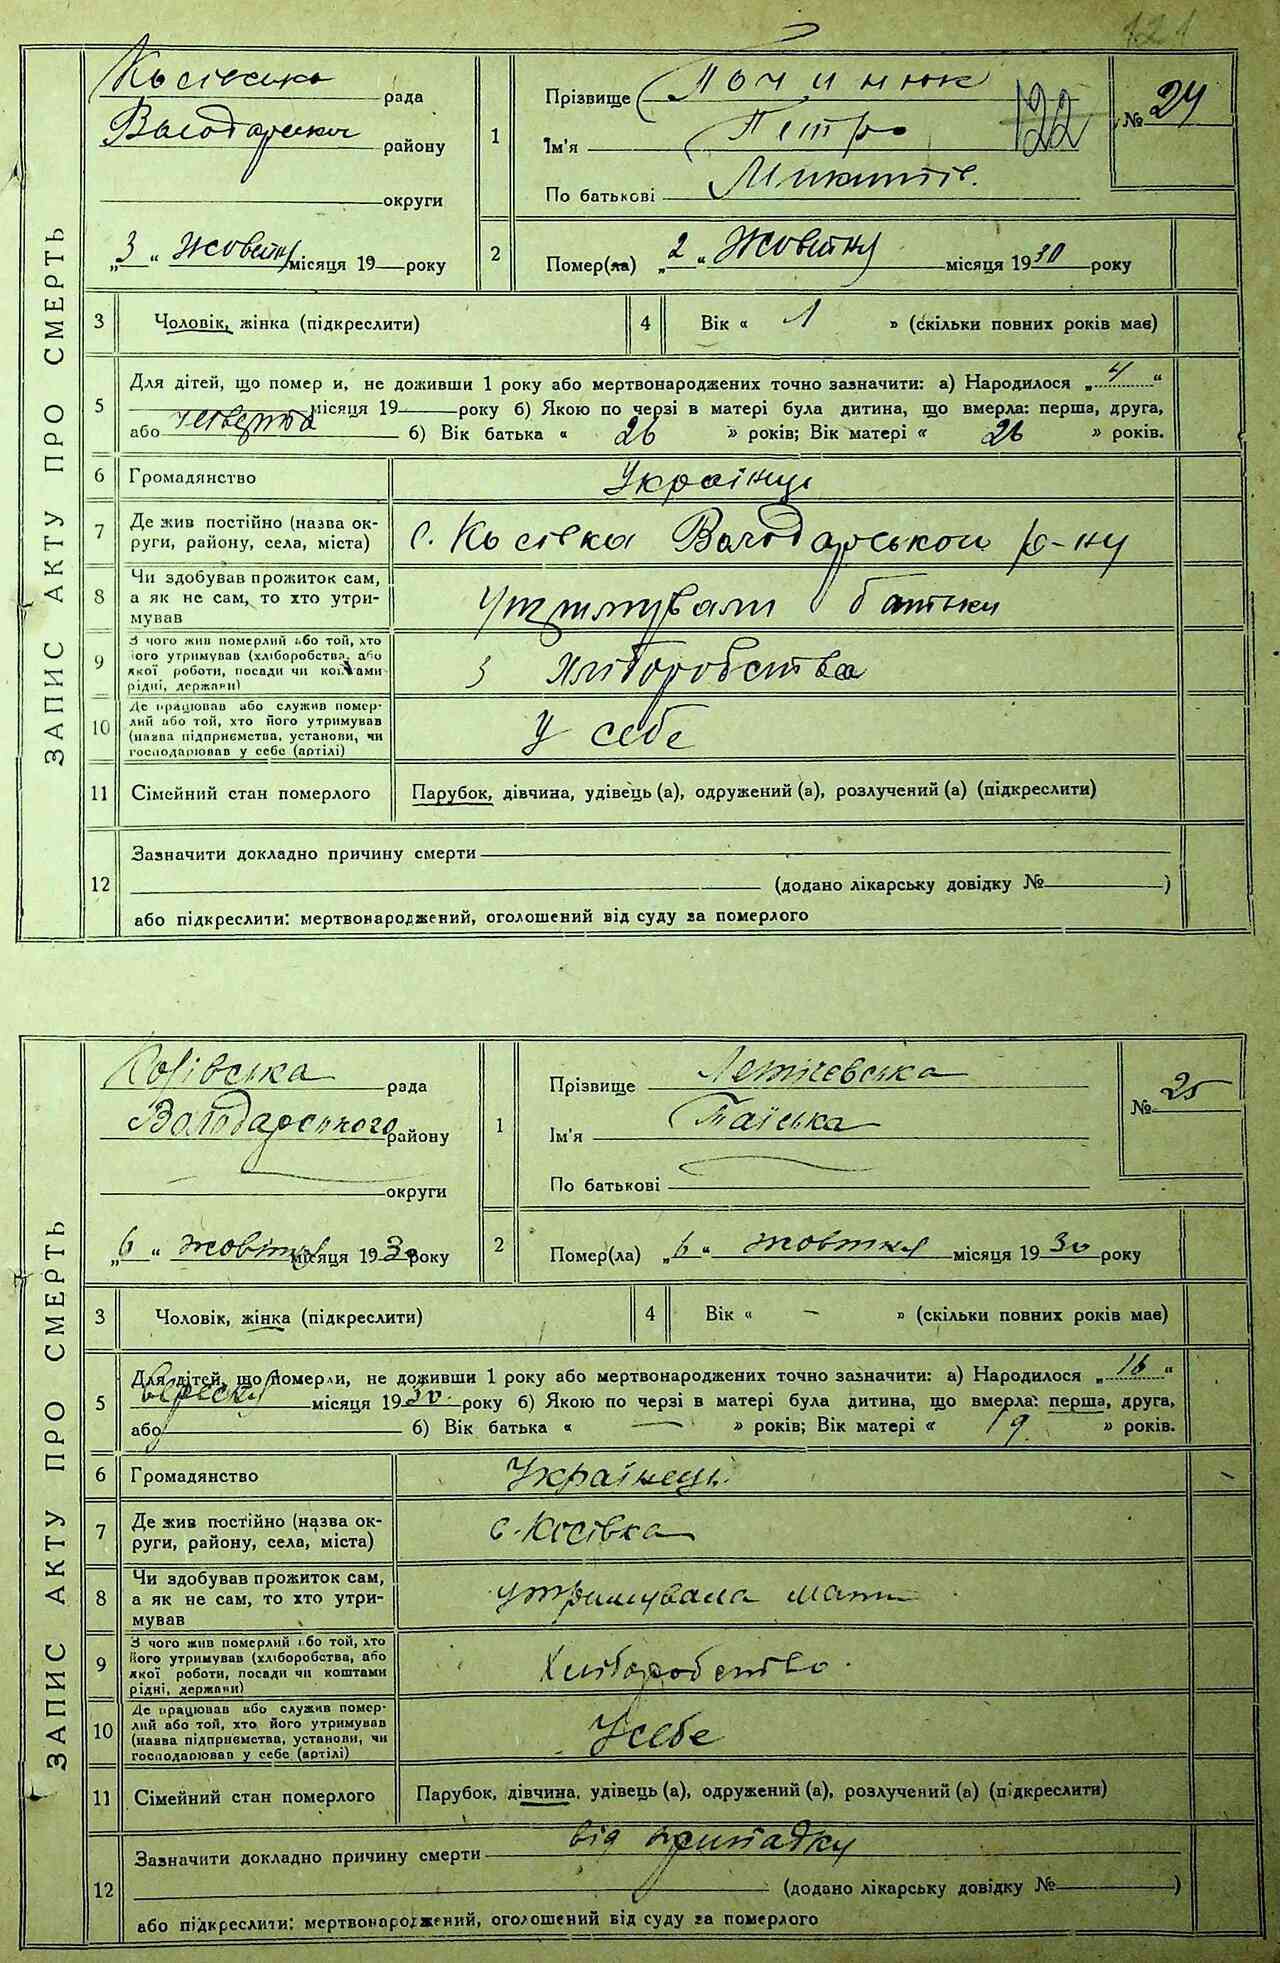 121
Косівська рада
Володарського району
округи
„3“ Жовтня місяця 19 року
1
Прізвище Починюк
Ім'я Петро
По батькові Микитів.
122
№ 24
2
Помер(ла) „2“ Жовтня місяця 1930 року
ЗАПИС АКТУ ПРО СМЕРТЬ
3 Чоловік, жінка (підкреслити)
4 Вік « 1 » (скільки повних років має)
5
Для дітей, що помер и, не доживши 1 року або мертвонароджених точно зазначити: а) Народилося „4“
місяця 19 року б) Якою по черзі в матері була дитина, що вмерла: перша, друга,
або четверта б) Вік батька « 26 » років; Вік матері « 26 » років.
6 Громадянство Українці
7 Де жив постійно (назва ок-
руги, району, села, міста) с. Косівка Володарського р-ну
8 Чи здобував прожиток сам,
а як не сам, то хто утри-
мував утримували батьки
9 З чого жив померлий або той, хто
його утримував (хліборобства, або
якої роботи, посади чи коштами
рідні, держави) з Хліборобства
10 Де працював або служив помер-
лий або той, хто його утримував
(назва підприємства, установи, чи
господарював у себе (артілі) У себе
11 Сімейний стан померлого Парубок, дівчина, удівець (а), одружений (а), розлучений (а) (підкреслити)
12
Зазначити докладно причину смерти
(додано лікарську довідку № )
або підкреслити: мертвонароджений, оголошений від суду за померлого
Косівська рада
Володарського району
округи
„6“ жовтня місяця 1930 року
1
Прізвище Летічевська
Ім'я Таїська
По батькові
№ 25
2
Помер(ла) „6“ жовтня місяця 1930 року
ЗАПИС АКТУ ПРО СМЕРТЬ
3 Чоловік, жінка (підкреслити)
4 Вік « – » (скільки повних років має)
5
Для дітей, що померли, не доживши 1 року або мертвонароджених точно зазначити: а) Народилося „16“
вересня місяця 1930 року б) Якою по черзі в матері була дитина, що вмерла: перша, друга,
або б) Вік батька « — » років; Вік матері « 19 » років.
6 Громадянство Українець
7 Де жив постійно (назва ок-
руги, району, села, міста) с. Косівка
8 Чи здобував прожиток сам,
а як не сам, то хто утри-
мував утримувала мати
9 З чого жив померлий або той, хто
його утримував (хліборобства, або
якої роботи, посади чи коштами
рідні, держави) Хліборобство.
10 Де працював або служив помер-
лий або той, хто його утримував
(назва підприємства, установи, чи
господарював у себе (артілі) У себе
11 Сімейний стан померлого Парубок, дівчина, удівець (а), одружений (а), розлучений (а) (підкреслити)
12
Зазначити докладно причину смерти від припадку
(додано лікарську довідку № )
або підкреслити: мертвонароджений, оголошений від суду за померлого